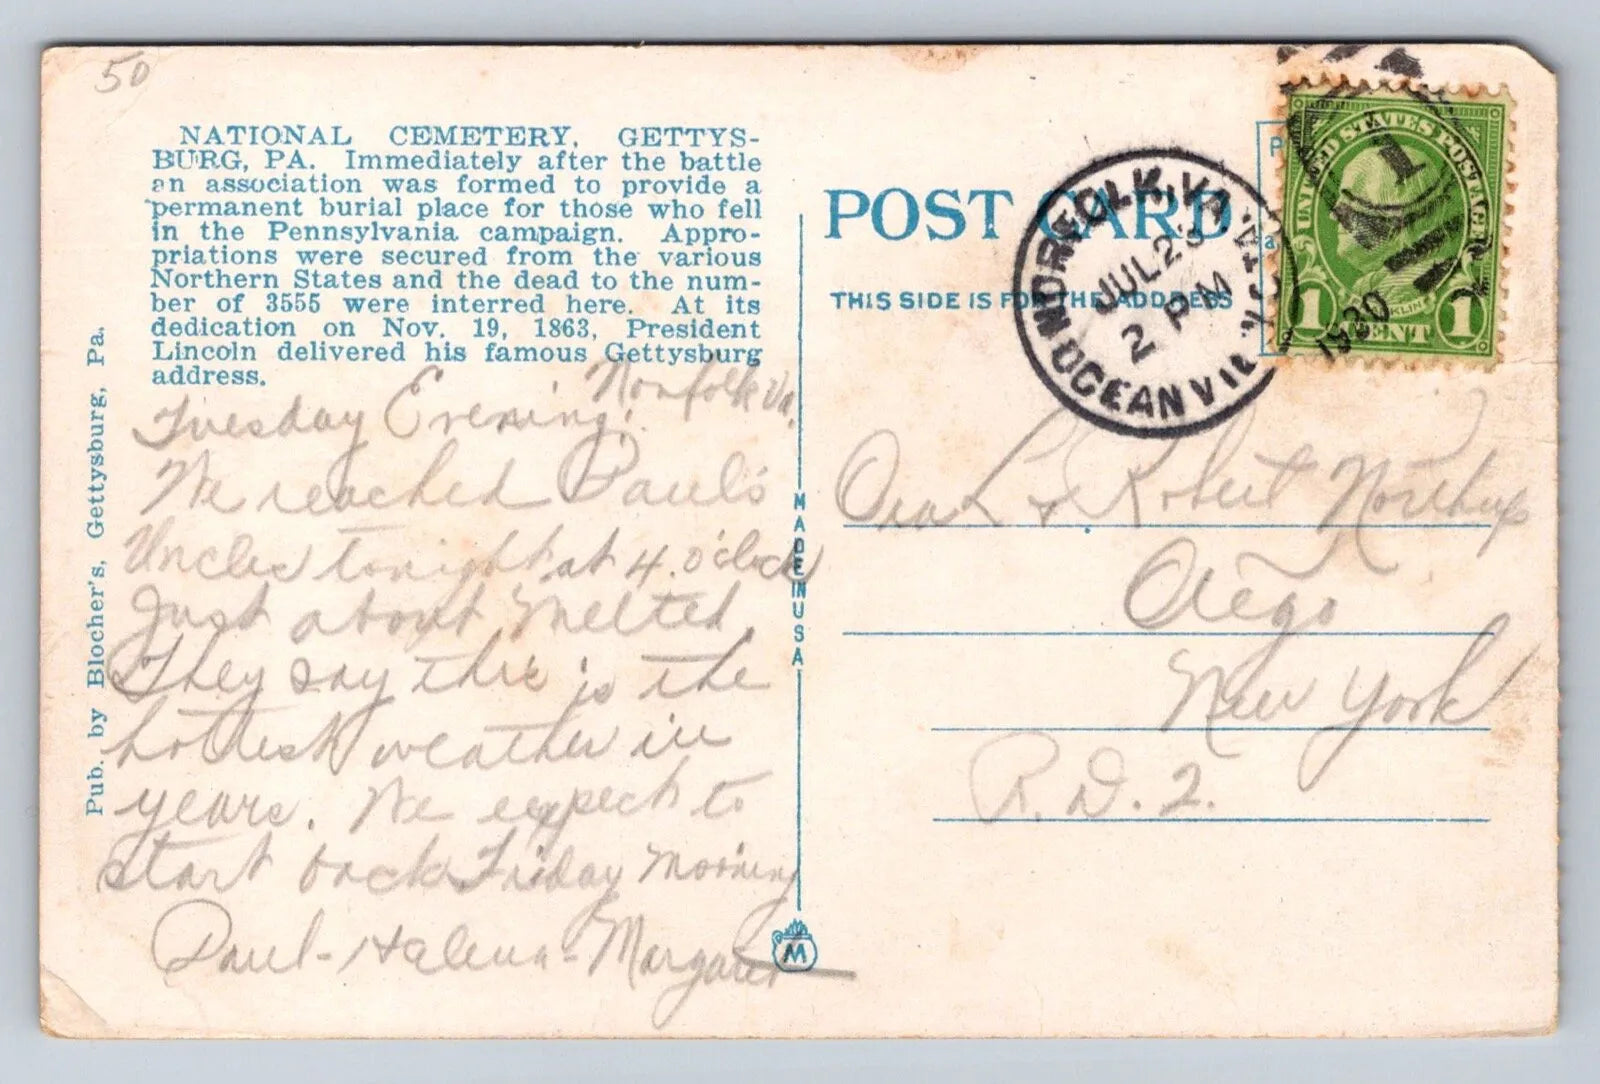 50
NATIONAL CEMETERY, GETTYS-
BURG, PA. Immediately after the battle
an association was formed to provide a
permanent burial place for those who fell
in the Pennsylvania campaign. Appro-
priations were secured from the various
Northern States and the dead to the num-
ber of 3555 were interred here. At its
dedication on Nov. 19, 1863, President
Lincoln delivered his famous Gettysburg
address.
Pub. by Blocher's, Gettysburg, Pa.
Norfolk Va.
Tuesday Evening.
We reached Paul's
Uncles tonight at 4. o'clock
Just about Melted
They say this is the
hottest weather in
years. We expect to
start back Friday Morning
Paul-Helena-Margaret
MADE IN USA
M
POST CARD
THIS SIDE IS FOR THE ADDRESS
NORFOLK, VA.
JUL 23
2 PM
1930
OCEAN VIEW
1
UNITED STATES POSTAGE
1 CENT 1
Ora L & Robert Northup
Otego
New York
R.D. 2.